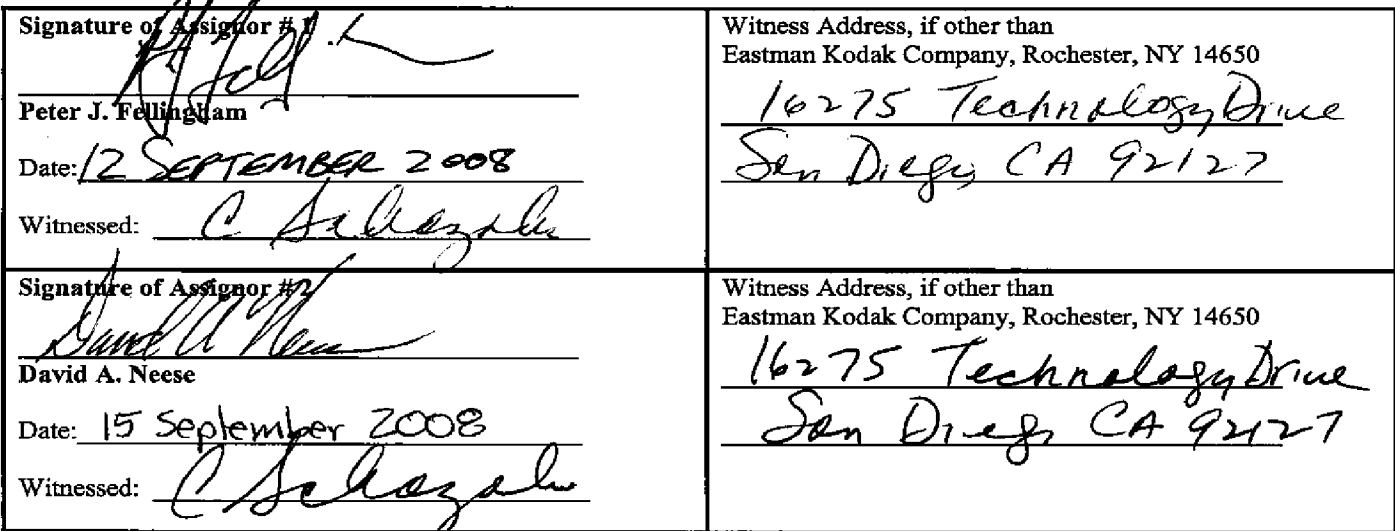 Signature of Assignor # 1
Peter J. Fellingham
Date: 12 SEPTEMBER 2008
Witnessed: C
Witness Address, if other than
Eastman Kodak Company, Rochester, NY 14650
16275 Technology Drive
San Diego, CA 92127
Signature of Assignor #2
David A Neese
David A. Neese
Date: 15 September 2008
Witnessed: C
Witness Address, if other than
Eastman Kodak Company, Rochester, NY 14650
16275 Technology Drive
San Diego CA 92127